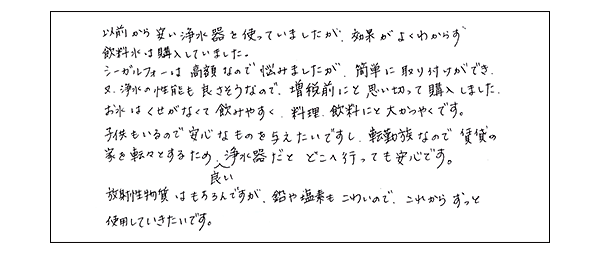 以前から安い浄水器を使っていましたが、効果がよくわからず
飲料水は購入していました。
シーガルフォーは高額なので悩みましたが、簡単に取り付けができ、
又、浄水の性能も良さそうなので、増税前にと思い切って購入しました。
お水はくせがなくて飲みやすく、料理、飲料にと大かつやくです。
子供もいるので安心なものを与えたいですし、転勤族なので賃貸の
家を転々とするため、良い浄水器だとどこへ行っても安心です。
放射性物質はもちろんですが、鉛や塩素もこわいので、これからずっと
使用していきたいです。